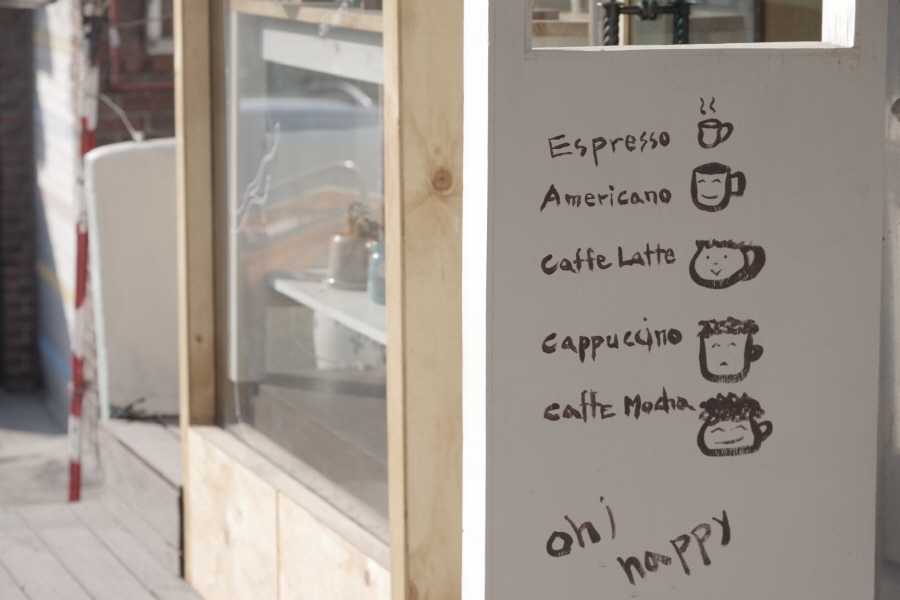 Espresso
Americano
caffe Latte
cappuccino
caffe Mocha
oh!
happy